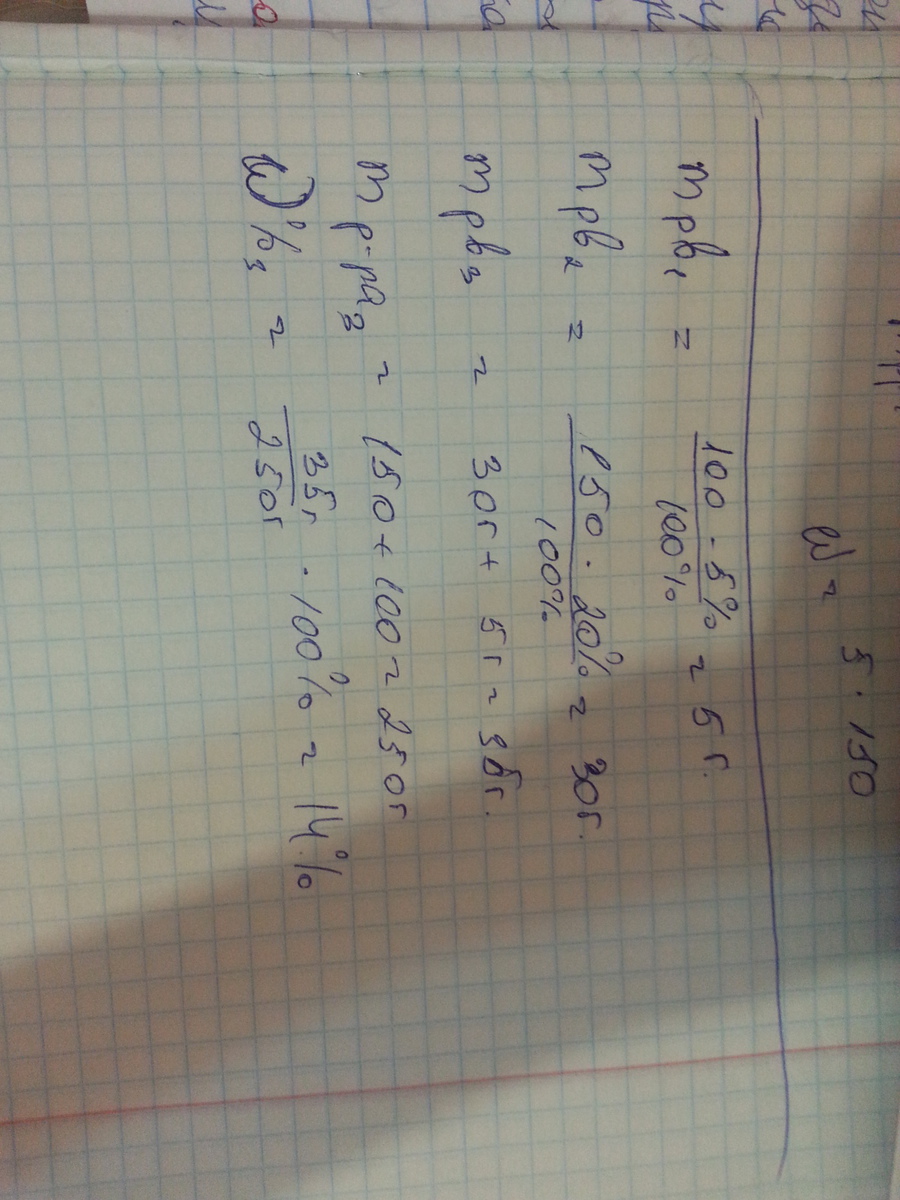 W = 5 · 150
m рв₁ = 100 · 5% / 100% = 5 г.
m рв₂ = 150 · 20% / 100% = 30 г.
m рв₃ = 30г + 5г = 35г.
m р-ра₃ = 150 + 100 = 250г
W%₃ = 35г / 250г · 100% = 14%